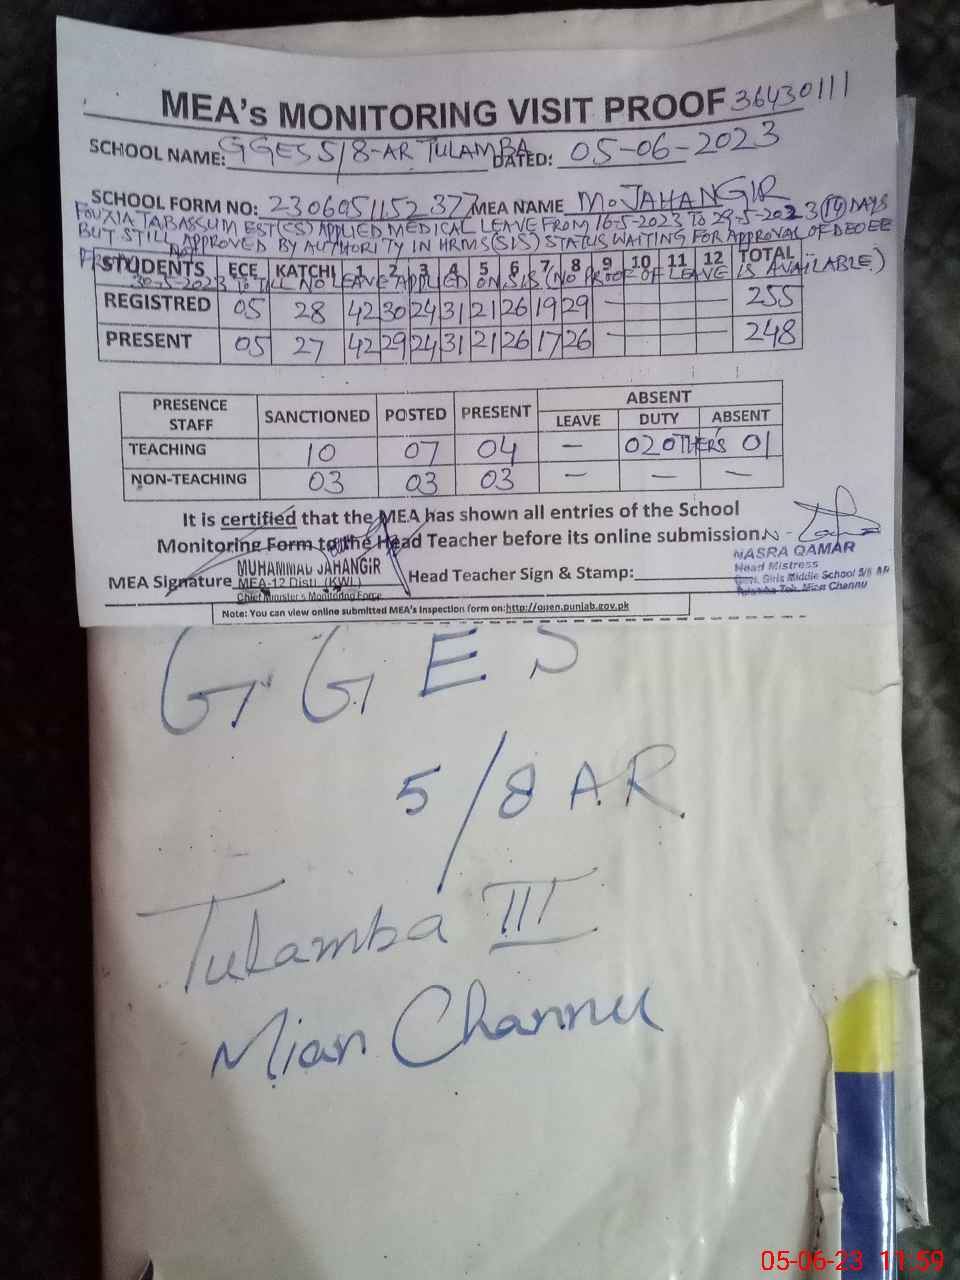 MEA's MONITORING VISIT PROOF 36430111
SCHOOL NAME: GGES 5/8-AR TULAMBA DATED: 05-06-2023
SCHOOL FORM NO: 230605115237 MEA NAME M. JAHANGIR
FOUZIA TABASSUM EST(CS) APPLIED MEDICAL LEAVE FROM 16-5-2023 TO 29-5-2023 (14) DAYS
BUT STILL NOT APPROVED BY AUTHORITY IN HRMS(SIS) STATUS WAITING FOR APPROVAL OF DEOEE
FROM 30-5-2023 TO TILL NO LEAVE APPLIED ON SIS (NO PROOF OF LEAVE IS AVAILABLE.)
STUDENTS ECE KATCHI 1 2 3 4 5 6 7 8 9 10 11 12 TOTAL
REGISTRED 05 28 42 30 24 31 21 26 19 29 — 255
PRESENT 05 27 42 29 24 31 21 26 17 26 — 248
PRESENCE STAFF SANCTIONED POSTED PRESENT ABSENT
LEAVE DUTY ABSENT
TEACHING 10 07 04 — 02 OTHERS 01
NON-TEACHING 03 03 03 — — —
It is certified that the MEA has shown all entries of the School
Monitoring Form to the Head Teacher before its online submission.
MEA Signature MUHAMMAD JAHANGIR
MEA-12 Distt. (KWL)
Chief Minister's Monitoring Force
Head Teacher Sign & Stamp:
NASRA QAMAR
Head Mistress
Govt. Girls Middle School 5/8 AR
Tulamba Teh. Mian Channu
Note: You can view online submitted MEA's inspection form on:http://open.punjab.gov.pk
GGES
5/8 AR
Tulamba III
Mian Channu
05-06-23 11:59